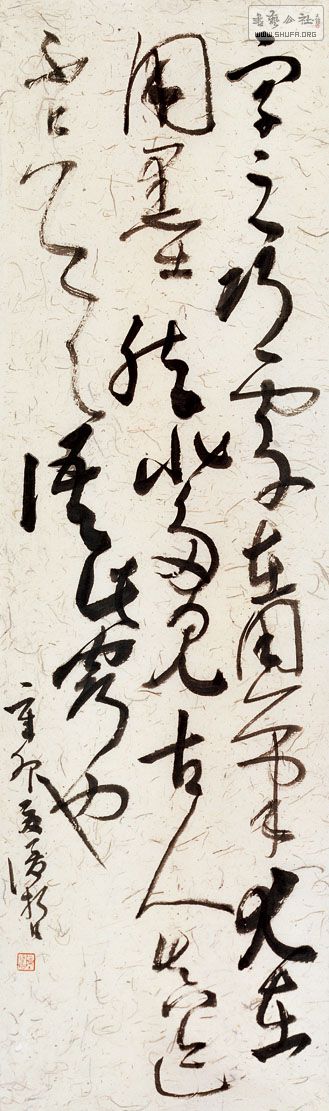 書藝公社
WWW.SHUFA.ORG
字之巧處在用筆尤在
用墨然非多見古人真迹
不足與語此竅也
辛卯夏